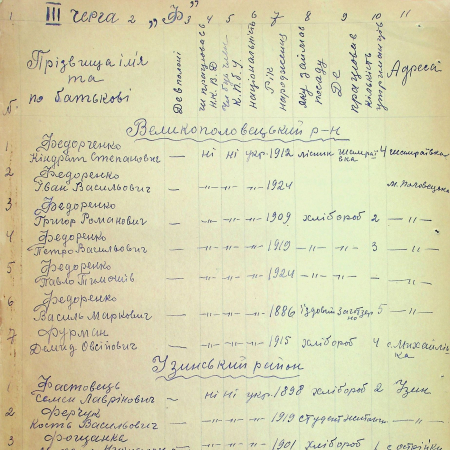 III черга „Ф"
1 2 3 4 5 6 7 8 9 10 11
Прізвища ім'я та по батькові
Де в полоні
чи працював в Н.К.В.Д
К.П.б.У
національність
Рік народження
яку займав посаду
Де працював
кількість утриманців
Адреса
Великополовецький р-н
1 Федорченко Кіндрат Степанович — ні ні укр. 1912 4
2 Федоренко Іван Васильович — -"- -"- -"- 1924
3 Федоренко Григор Романович — -"- -"- -"- 1909 хлібороб 2 -"-
4 Федоренко Петро Васильович — -"- -"- -"- 1919 -"- -"- 3 -"-
5 Федоренко Павло Тимофіїв — -"- -"- -"- 1924 -"- -"- -"-
6 Федоренко Василь Маркович — -"- -"- -"- 1886 їздовий 5 -"-
7 Фурман Демид Овсійович — -"- -"- -"- 1915 хлібороб 4
Узинський район
1 Фастовець Семен Лаврінович — ні ні укр. 1898 хлібороб 2 Узин
2 Ферчук Кость Васильович — -"- -"- -"- 1919 студент -"-
3 Фощанка -"- -"- -"- 1901 хлібороб